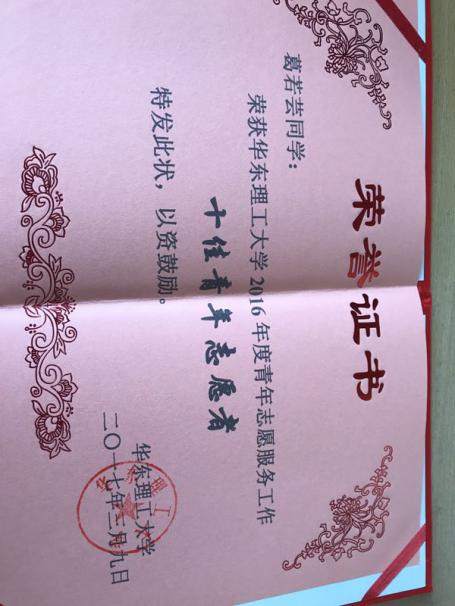 荣誉证书
葛若芸同学：
荣获华东理工大学2016年度青年志愿服务工作
十佳青年志愿者
特发此状，以资鼓励。
华东理工大学
二〇一七年三月九日